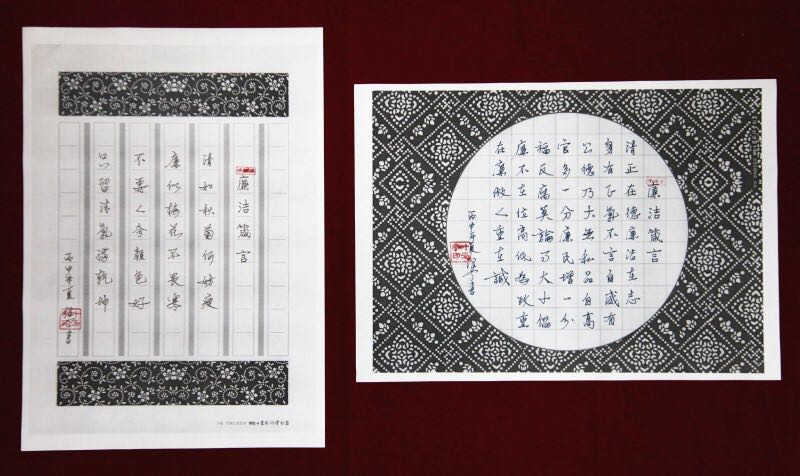 廉洁箴言
清如秋菊何妨瘦
廉似梅花不畏寒
不要人夸颜色好
只留清氣满乾坤
丙申年夏
廉洁箴言
清正在德廉洁在志
身有正氣不言自威有
公德乃大無私品自高
官多一分廉民增一分
福反腐莫論大小倡
廉不在位高低為政重
在廉做人重在誠
丙申年夏书